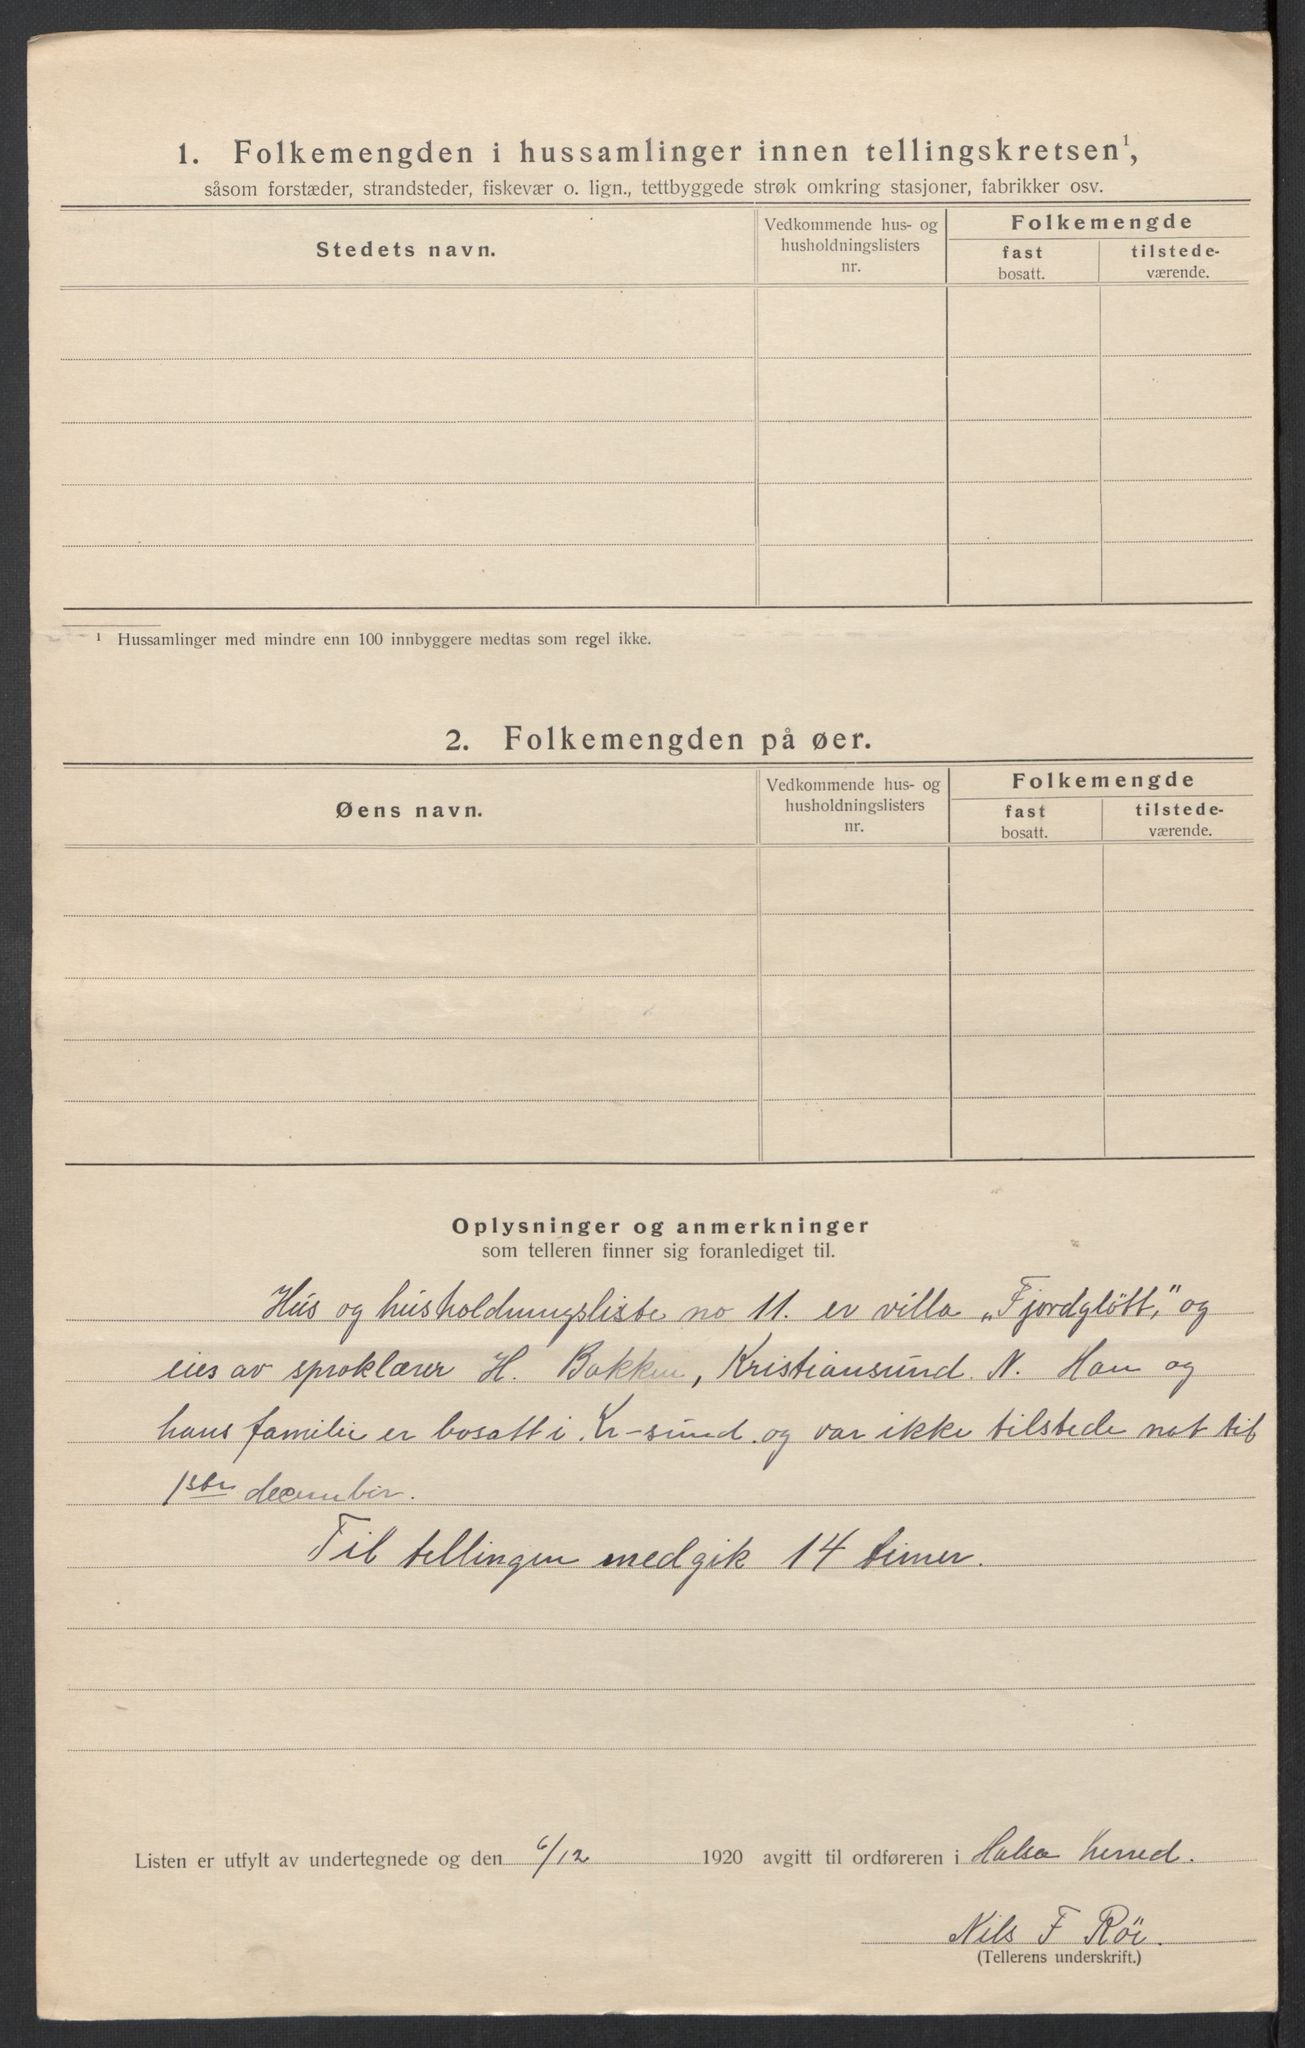 1. Folkemengden i hussamlinger innen tellingskretsen¹,
såsom forstæder, strandsteder, fiskevær o. lign., tettbyggede strøk omkring stasjoner, fabrikker osv.
Stedets navn.
Vedkommende hus- og
husholdningslisters
nr.
Folkemengde
fast
bosatt.
tilstede-
værende.
¹ Hussamlinger med mindre enn 100 innbyggere medtas som regel ikke.
2. Folkemengden på øer.
Øens navn.
Vedkommende hus- og
husholdningslisters
nr.
Folkemengde
fast
bosatt.
tilstede-
værende.
Oplysninger og anmerkninger
som telleren finner sig foranlediget til.
Hus og husholdningsliste no 11. er villa „Fjordglött," og
eies av sproklærer H. Bakken, Kristiansund. N. Han og
hans familie er bosatt i Kr-sund. og var ikke tilstede nat til
1ste december.
Til tellingen medgik 14 timer.
Listen er utfylt av undertegnede og den 6/12 1920 avgitt til ordføreren i Halsa herred.
Nils F Röe.
(Tellerens underskrift.)